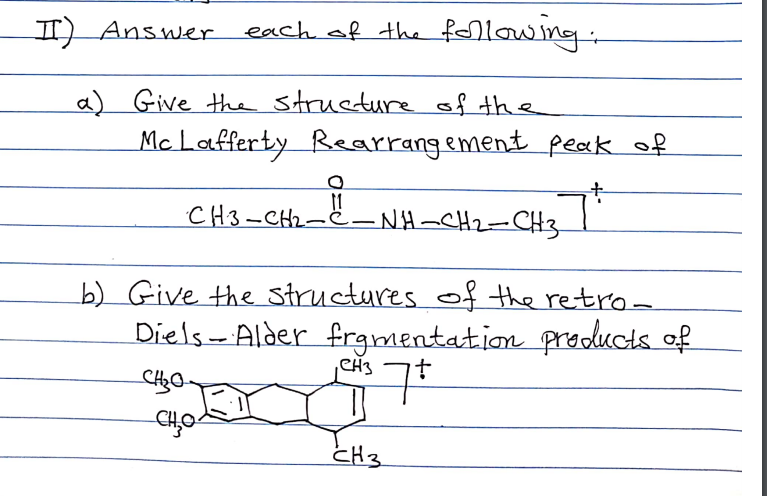 II) Answer each of the following:
a) Give the structure of the
McLafferty Rearrangement peak of
O
CH3-CH2-C-NH-CH2-CH3 +.
b) Give the structures of the retro-
Diels-Alder frgmentation products of
CH3 +.
CH3O
CH3O
CH3